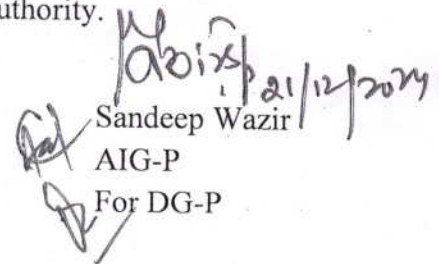 uthority.
21/12/2024
Sandeep Wazir
AIG-P
For DG-P